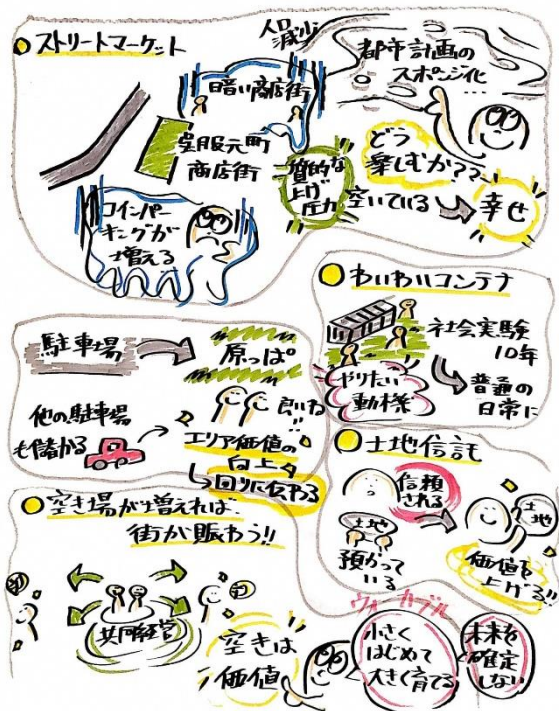 ストリートマーケット
人口
減少
都市計画の
スポンジ化
日暗い商店街
呉服元町
商店街
質的な
上げ
圧力
どう
楽しむか??
空いている
幸せ
コインパー
キングが
増える
わいわいコンテナ
社会実験
10年
やりたい
動機
普通の
日常に
駐車場
原っぱ
他の駐車場
も儲かる
良いね!!
エリア価値の
向上
回りに伝わる
土地信託
信頼
される
土地
預かって
いる
土地
価値を
上げる!!
空き場が増えれば、
街が賑わう!!
共同経営
空きは
価値
ウォーカブル
小さく
はじめて
大きく育てる
未来を
確定
しない